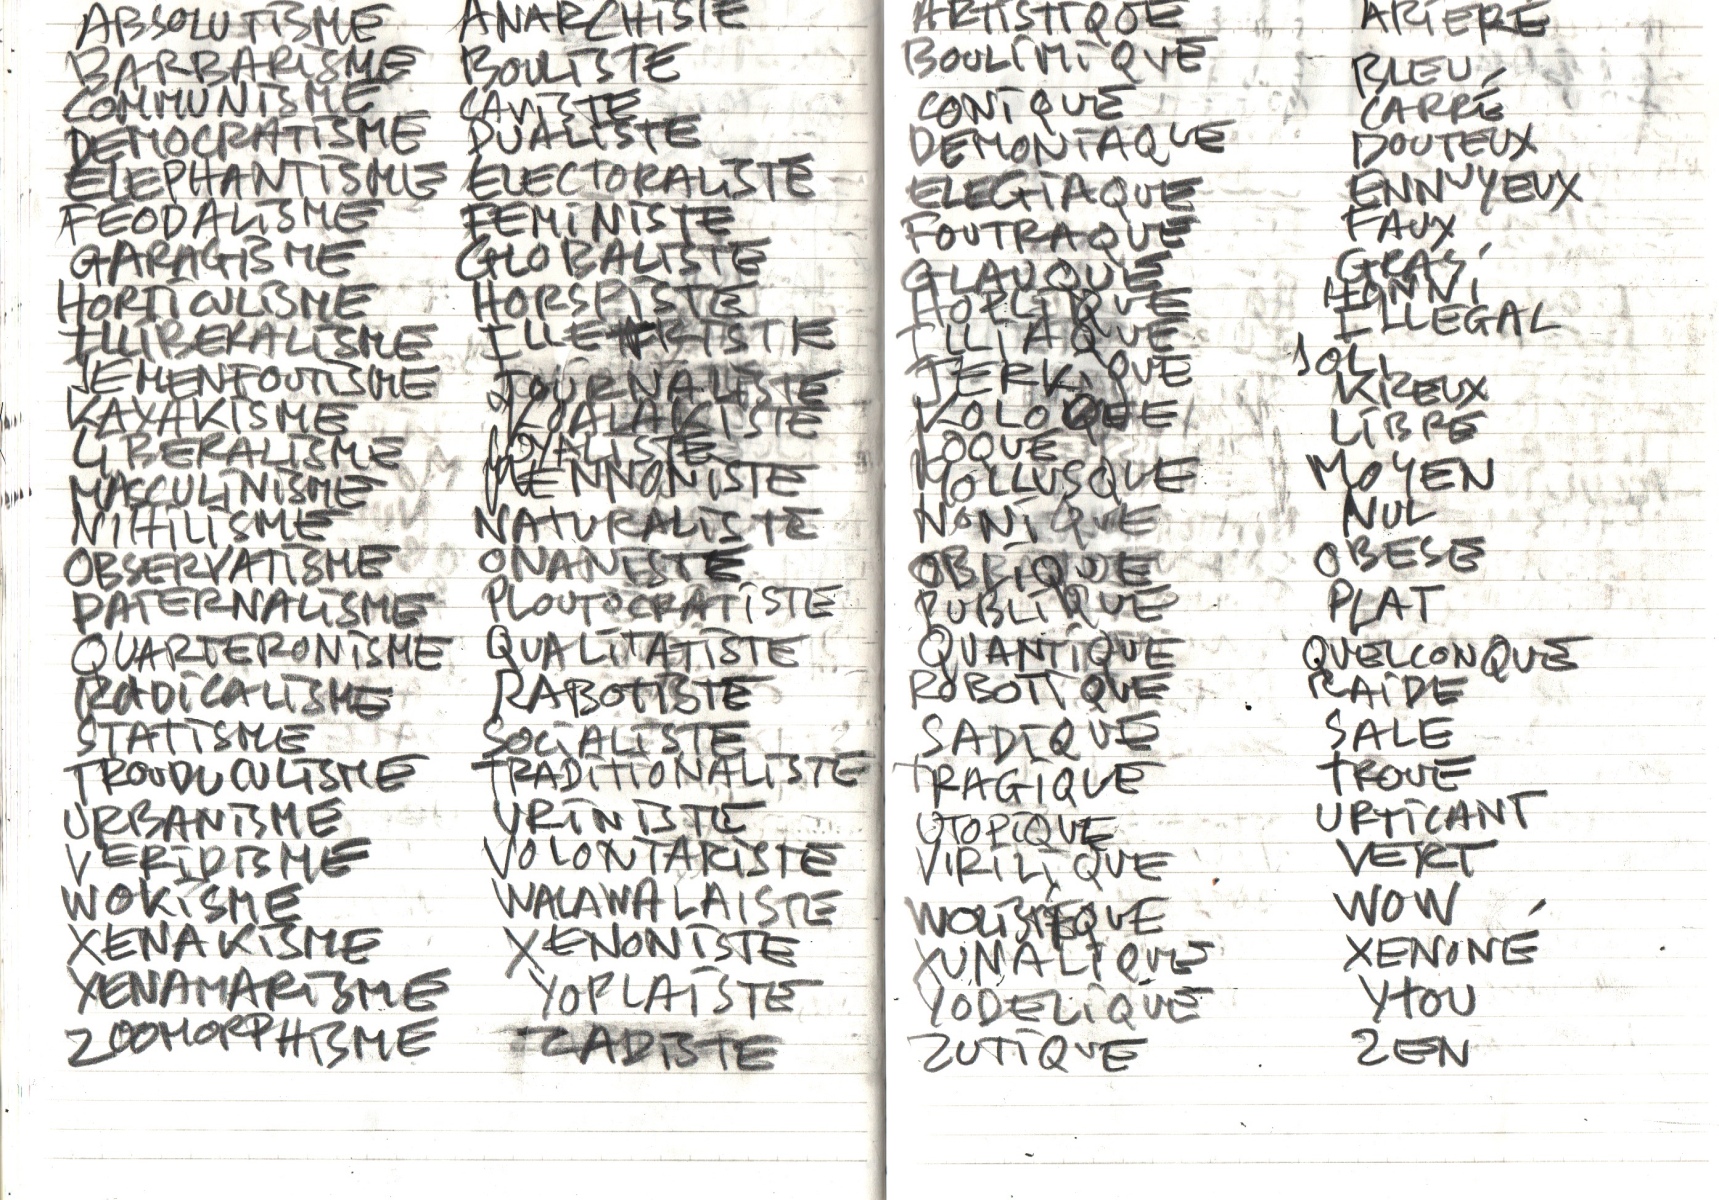 ABSOLUTISME ANARCHISTE ARTISTIQUE ARIERÉ
BARBARISME BOULISTE BOULIMIQUE BLEU
COMMUNISME CAVISTE CONIQUE CARRÉ
DEMOCRATISME DUALISTE DEMONIAQUE DOUTEUX
ELEPHANTISME ELECTORALISTE ELEGIAQUE ENNUYEUX
FEODALISME FEMINISTE FOUTRAQUE FAUX
GARAGISME GLOBALISTE GLAUQUE GRAS
HORTICULISME HORSPISTE HOPLIQUE HONNI
ILLIBERALISME ILLIAQUE ILLEGAL
JEMENFOUTISME JOURNALISTE JERKIQUE JOLI
KAYAKISME KOALAKISTE KOLOQUE KIREUX
LIBERALISME LOYALISTE LOQUE LIBRE
MASCULINISME MENNONISTE MOLLUSQUE MOYEN
NIHILISME NATURALISTE NONIQUE NUL
OBSERVATISME ONANISTE OBLIQUE OBESE
PATERNALISME PLOUTOCRATISTE PUBLIQUE PLAT
QUARTERONISME QUALITATISTE QUANTIQUE QUELCONQUE
RADICALISME RABOTISTE ROBOTIQUE RAIDE
STATISME SOCIALISTE SADIQUE SALE
TROUDUCULISME TRADITIONALISTE TRAGIQUE TROUE
URBANISME URINISTE UTOPIQUE URTICANT
VERIDISME VOLONTARISTE VIRILIQUE VERT
WOKISME WALAWALAISTE WOW
XENAKISME XENONISTE XUNALIQUE XENONÉ
YENAMARISME YOPLAISTE YODELIQUE YTOU
ZOOMORPHISME ZADISTE ZUTIQUE ZEN